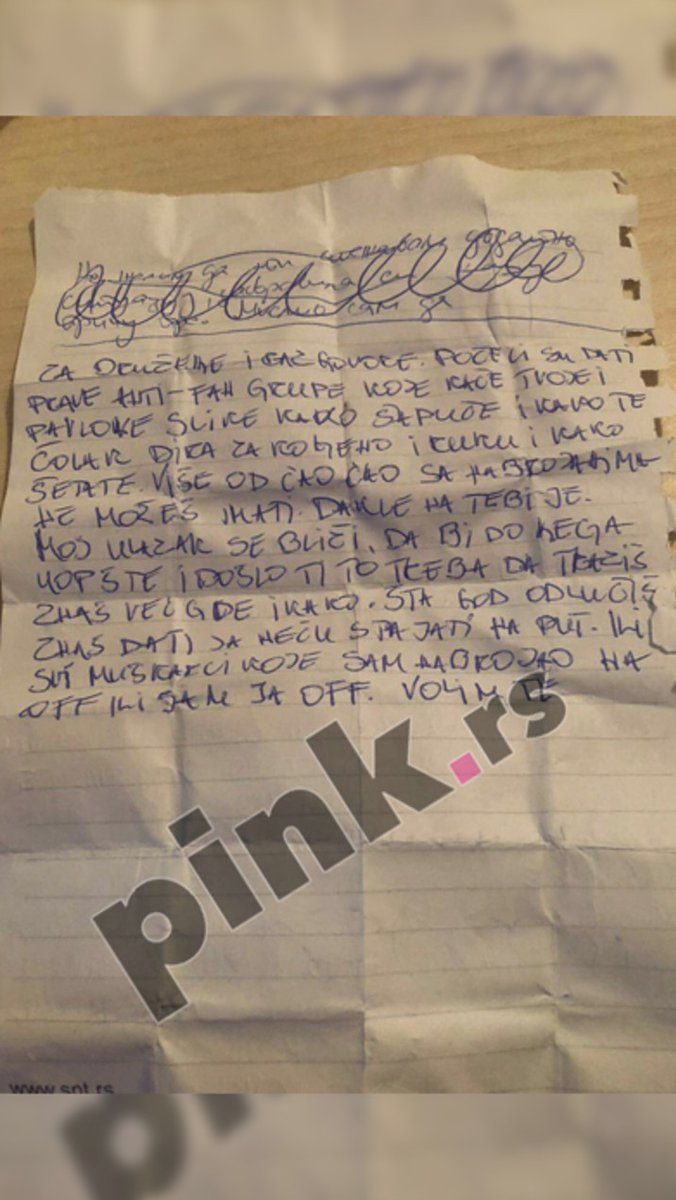 da
ZA OKRUŽENJE I RAZGOVORE. POČELI SU DATI
PRAVE ANTI-FAN GRUPE KOJE KAČE TVOJE I
PAVLOVE SLIKE KAKO ŠAPUĆE I KAKO TE
ČOLAK DIRA ZA KOLJENO I KUKU I KAKO
ŠETATE. VIŠE OD ĆAO ĆAO SA NABROJANIMA
NE MOŽEŠ IMATI. DAKLE NA TEBI JE.
MOJ ULAZAK SE BLIŽI, DA BI DO NJEGA
UOPŠTE I DOŠLO TI TO TREBA DA TRAŽIŠ
ZNAŠ VEĆ GDE I KAKO. ŠTA GOD ODLUČIŠ
ZNAŠ DA TI JA NEĆU STAJATI NA PUT. ILI
SVI MUŠKARCI KOJE SAM NABROJAO NA
OFF ILI SAM JA OFF. VOLIM TE
pink.rs
www.spt.rs